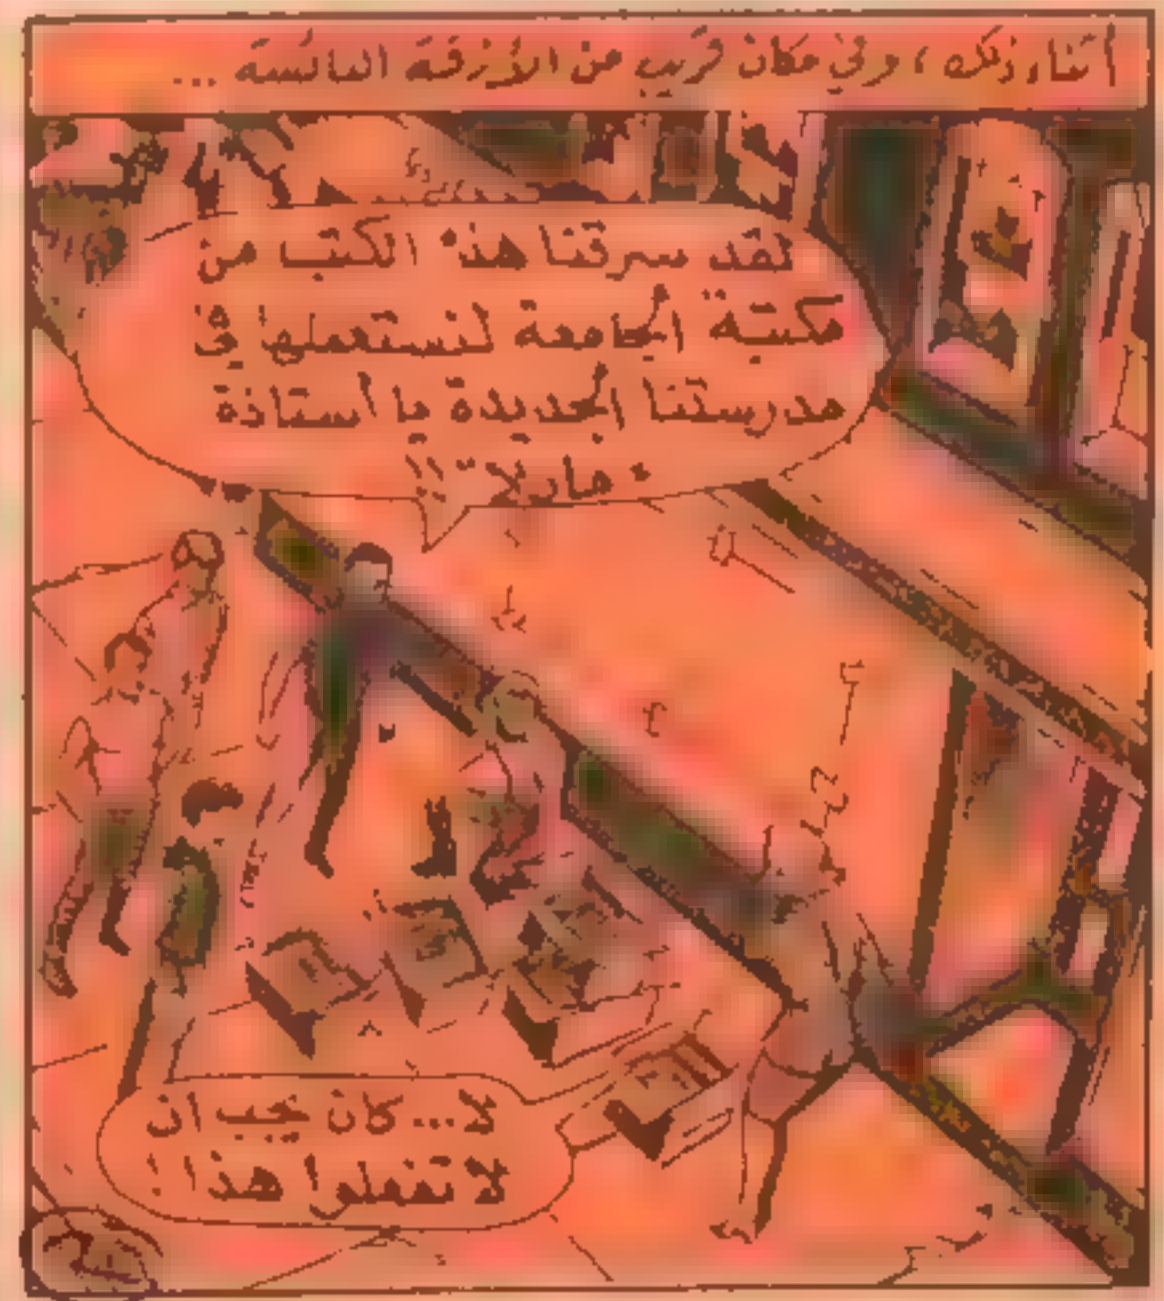 أثناء ذلك ، وفي مكان قريب من الأزقة البائسة ...
لقد سرقنا هذه الكتب من
مكتبة الجامعة لنستعملها في
مدرستنا الجديدة يا أستاذة
" مارلا " !!
لا... كان يجب ان
لا تفعلوا هذا !